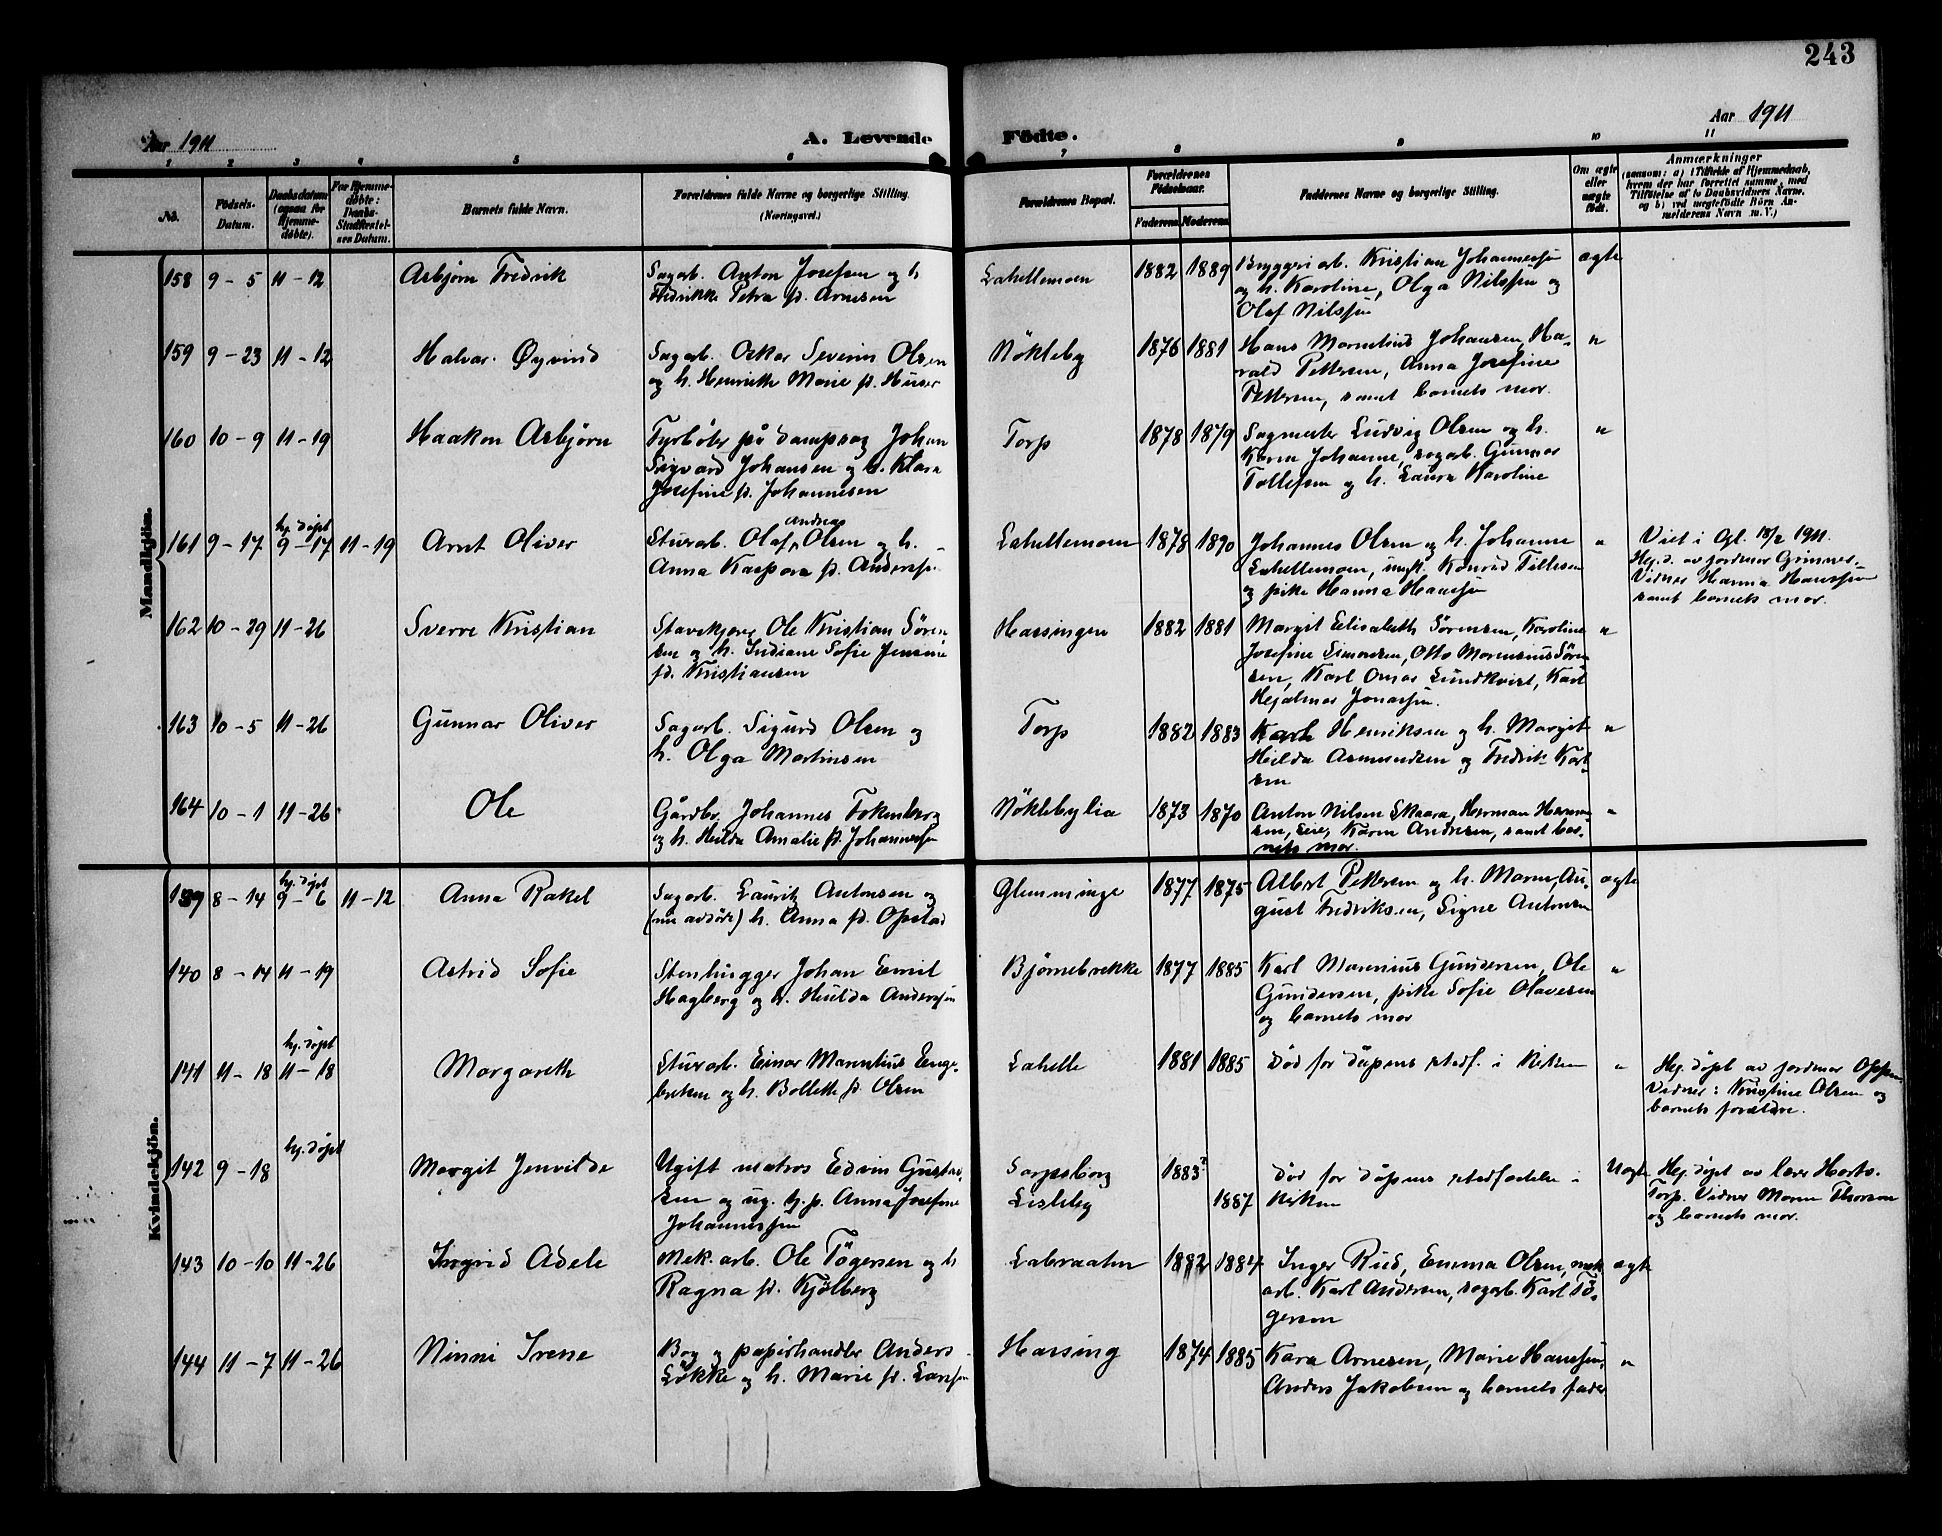 243
Aar 1911
A. Levende Födte.
Aar 1911
1 2 3 4 5 6 7 8 9 10 11
No.
Födsels-Datum.
Daabsdatum (ogsaa for Hjemme-döbte).
For Hjemme-döbte: Daabs-Stadfæstelses Datum.
Barnets fulde Navn.
Forældrenes fulde Navne og borgerlige Stilling.
(Næringsvei.)
Forældrenes Bopæl.
Forældrenes Födselsaar.
Faderens Moderens
Faddernes Navne og borgerlige Stilling.
Om ægte eller uægte födt.
Anmærkninger
(saasom: a) i Tilfælde af Hjemmedaab, hvem der har forrettet samme, med Tilföielse af to Daabsvidners Navne, og b) ved uægtefödte Börn Anmelderens Navn m. V.)
Mandkjön.
158 9-5 11-12 Asbjørn Fredrik
Sagarb. Anton Josefsen og h
Fredrikke Petra f. Arnesen
Lahellemoen 1882 1889
Bryggeriarb. Kristian Johannessen
og h. Karoline, Olga Nilssen og
Olaf Nilssen
ægte
159 9-23 11-12 Halvar Øyvind
Sagarb. Oskar Severin Olsen
og h. Henriette Marie f. Huser
Nökleby 1876 1881
Hans Marnelius Johansen, Ha-
rald Pettersen, Anna Josefine
Pettersen, samt barnets mor.
"
160 10-9 11-19 Haakon Asbjørn
Fyrböter på dampsag Johan
Sigvard Johansen og h. Klara
Josefine f. Johannesen
Torp 1878 1879
Sagmester Ludvig Olsen og h.
Karen Johanne, sagarb. Gunnar
Tollefsen og h. Laura Karoline
"
161 9-17 hj. döpt 9-17 11-19 Arnt Oliver
Stuearb. Olaf Andreas Olsen og h.
Anna Kaspara f. Anderssen
Lahellemoen 1878 1890
Johannes Olsen og h. Johanne
Lahellemoen, ungk. Konrad Tollefsen
og pike Hanna Hanssen
"
Viet i Gl. 18/2 1911.
Hej.d. av jordmor Grimnes.
Vidner Hanna Hanssen
samt barnets mor.
162 10-29 11-26 Sverre Kristian
Stavskjører Ole Kristian Sören-
sen og h. Indiane Sofie Jensine
fd. Kristiansen
Hassingen 1882 1881
Margit Elisabeth Sörensen, Karoline
Josefine Simonsen, Otto Marensius Sören-
sen, Karl Omar Lundkvist, Karl
Hjalmar Jonassen.
"
163 10-5 11-26 Gunnar Oliver
Sagarb. Sigurd Olsen og
h. Olga Martinsen
Torp 1882 1883
Karl Henriksen og h. Margit
Hilda Asmundsen og Fredrik Karl-
sen
"
164 10-1 11-26 Ole
Gårdbr. Johannes Fokenberg
og h. Hulda Amalie f. Johannessen
Nöklebylia 1873 1870
Anton Nilsen Skaara, Herman Herman-
sen, Karen Andersen, samt bar-
nets mor.
"
Kvindekjön.
139 8-14 hj. döpt 9-6 11-12 Anna Rakel
Sagarb. Lauritz Antonsen og
(nu avdöde) h. Anna f. Opstad
Glemminge 1877 1875
Albert Pettersen og h. Maren, Au-
gust Fredriksen, Signe Antonsen
ægte
140 8-14 11-19 Astrid Sofie
Stenhugger Johan Emil
Hagberg og h. Hulda Anderssen
Bjørnebrekke 1877 1885
Karl Marenius Gundersen, Ole
Gundersen, pike Sofie Olavesen
og barnets mor
"
141 11-18 hj. döpt 11-18 Margareth
Stuearb. Einar Marentius Enge-
bretsen og h. Bollette f. Olsen
Lahelle 1881 1885
Död för dåpens stadf. i Kirken
"
Hej. döpt av jordmor Oppen
Vidner: Kristine Olsen og
barnets forældre.
142 9-18 hj. döpt Margit Jenvilde
Ugift matros Edvin Gustav-
sen og ug. hj. p. Anna Josefine
Johannessen
Sarpsborg
Lisleby
1883?
1887
Död för Dåpens stadfæstelse i
Kirken
Uægte
Hej. döpt av læser Hartv.
Torp. Vidner Maren Thorsen
og barnets mor.
143 10-10 11-26 Ingrid Adele
Mek. arb. Ole Tögersen og h
Ragna f. Kjölberg
Labraaten 1882 1884
Inger Rud, Emma Olsen, mek
arb. Karl Andersen, sagarb. Karl Tö-
gersen
ægte
144 11-7 11-26 Ninni Irene
Bog og papirhandler Anders
Lökke og h. Marie f. Larsen
Hassing 1874 1885
Kara Arnesen, Marie Hanssen,
Anders Jakobsen og barnets fader
"